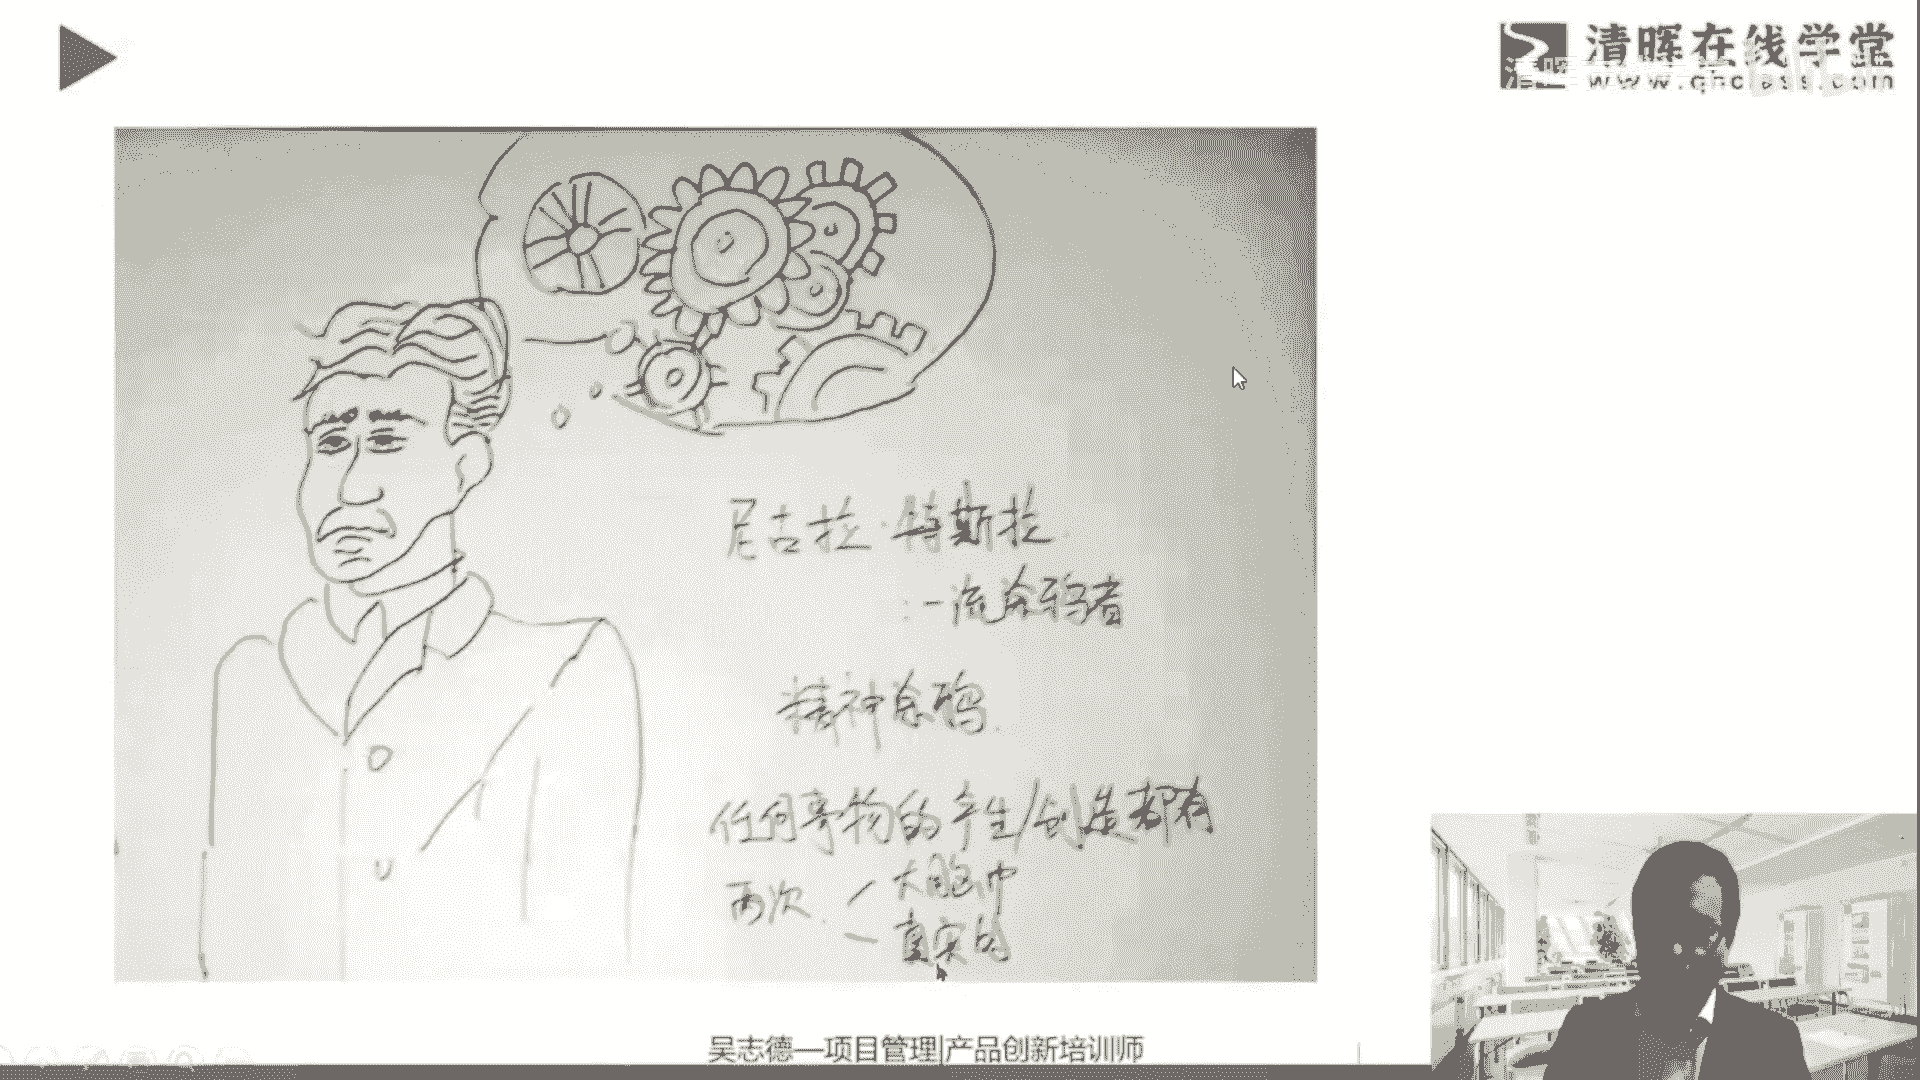 清晖在线学堂
www.qhclass.com
尼古拉·特斯拉
:一流金玛者
精神
任何事物的产生/创造都有
两次 — 大脑中
— 真实的
吴志德—项目管理|产品创新培训师